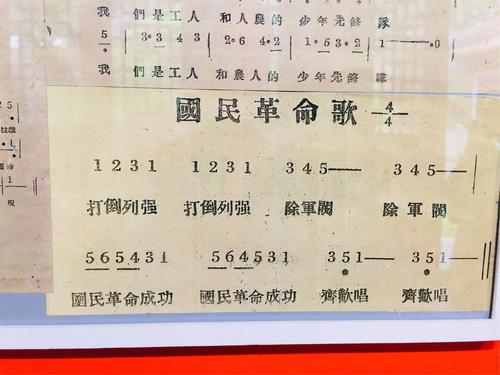 我 們是工人 和人農的 少年先鋒 隊
5 | 3·3 4 3 | 2·6 4·2 | 1·5 3 2 | 1——·0
我 們是工人 和農人的 少年先鋒 隊
國民革命歌 4/4
1 2 3 1 1 2 3 1 3 4 5 — 3 4 5 —
打倒列强 打倒列强 除軍閥 除軍閥
5 6 5 4 3 1 5 6 4 5 3 1 3 5 1 — 3 5 1 —
國民革命成功 國民革命成功 齊歡唱 齊歡唱